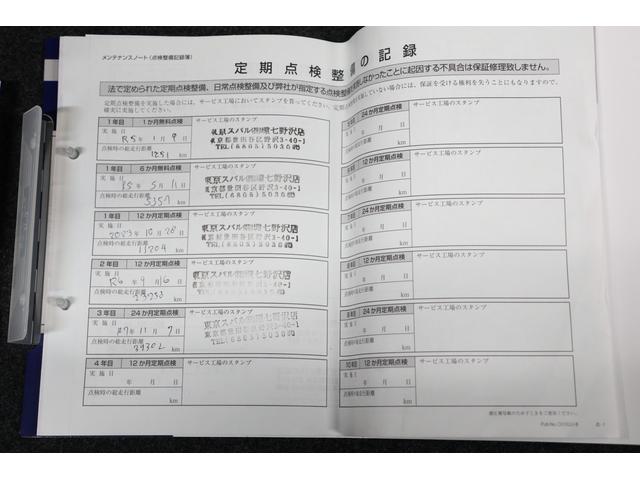 メンテナンスノート（点検整備記録簿）
定期点検整備の記録
法で定められた定期点検整備、日常点検整備及び弊社が指定する点検整備
しなかったことに起因する不具合は保証修理致しません。
定期点検整備を実施した場合には、サービス工場においてスタンプを貰ってください。
確実に実施してください。
実施していない場合には、保証を受ける権利を失うこともなりますので、
1年目 1か月無料点検 サービス工場のスタンプ
実施日 R5年 1月 9日
点検時の総走行距離
1251 km
東京スバル㈱環七野沢店
東京都世田谷区野沢3-40-1
TEL(6805)5036
1年目 6か月無料点検 サービス工場のスタンプ
実施日 年 5月 11日
点検時の総走行距離
5357 km
東京スバル㈱環七野沢店
東京都世田谷区野沢3-40-1
TEL(6805)5036
1年目 12か月定期点検 サービス工場のスタンプ
実施日
2023年 10月 28日
点検時の総走行距離
km
東京スバル㈱環七野沢店
東京都世田谷区野沢3-40-1
TEL(6805)5036
2年目 12か月定期点検 サービス工場のスタンプ
実施日
R6年 9月 16日
点検時の総走行距離
km
東京スバル㈱環七野沢店
東京都世田谷区野沢3-40-1
TEL(6805)5036
3年目 24か月定期点検 サービス工場のスタンプ
実施日
R7年 11月 7日
点検時の総走行距離
km
東京スバル㈱環七野沢店
東京都世田谷区野沢3-40-1
TEL(6805)5036
4年目 12か月定期点検 サービス工場のスタンプ
実施日
年 月 日
点検時の総走行距離
km
24か月定期点検 サービス工場のスタンプ
年 月 日
点検時の総走行距離
km
12か月定期点検 サービス工場のスタンプ
年 月 日
点検時の総走行距離
km
24か月定期点検 サービス工場のスタンプ
年 月 日
点検時の総走行距離
km
12か月定期点検 サービス工場のスタンプ
年 月 日
点検時の総走行距離
km
24か月定期点検 サービス工場のスタンプ
年 月 日
点検時の総走行距離
km
10年目 12か月定期点検 サービス工場のスタンプ
実施日
年 月 日
点検時の総走行距離
km